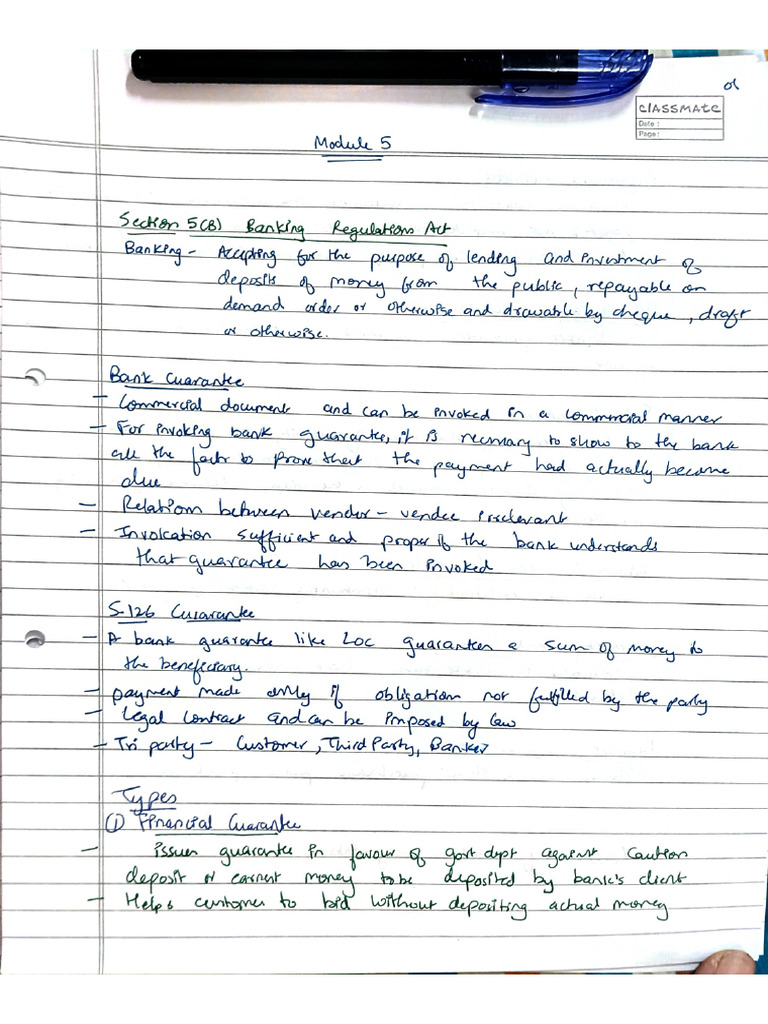 01
CLASSMATE
Date :
Page :
Module 5
Section 5(B) Banking Regulations Act
Banking - Accepting for the purpose of lending and investment of
deposits of money from the public, repayable on
demand order or otherwise and drawable by cheque, draft
or otherwise.
Bank Guarantee
- Commercial document and can be invoked in a commercial manner
- For invoking bank guarantee, it is necessary to show to the bank
all the facts to prove that the payment had actually become
due
- Relation between vendor - vendee irrelevant
- Invokation sufficient and proper if the bank understands
that guarantee has been invoked
S-126 Guarantee
- A bank guarantee like LOC guarantees a sum of money to
the beneficiary.
- payment made only if obligation not fulfilled by the party
- Legal contract and can be imposed by law
- Tri party - Customer, Third Party, Banker
Types
① Financial Guarantee
- issues guarantee in favour of govt dept against caution
deposit or earnest money to be deposited by bank's client
- Helps customer to bid without depositing actual money